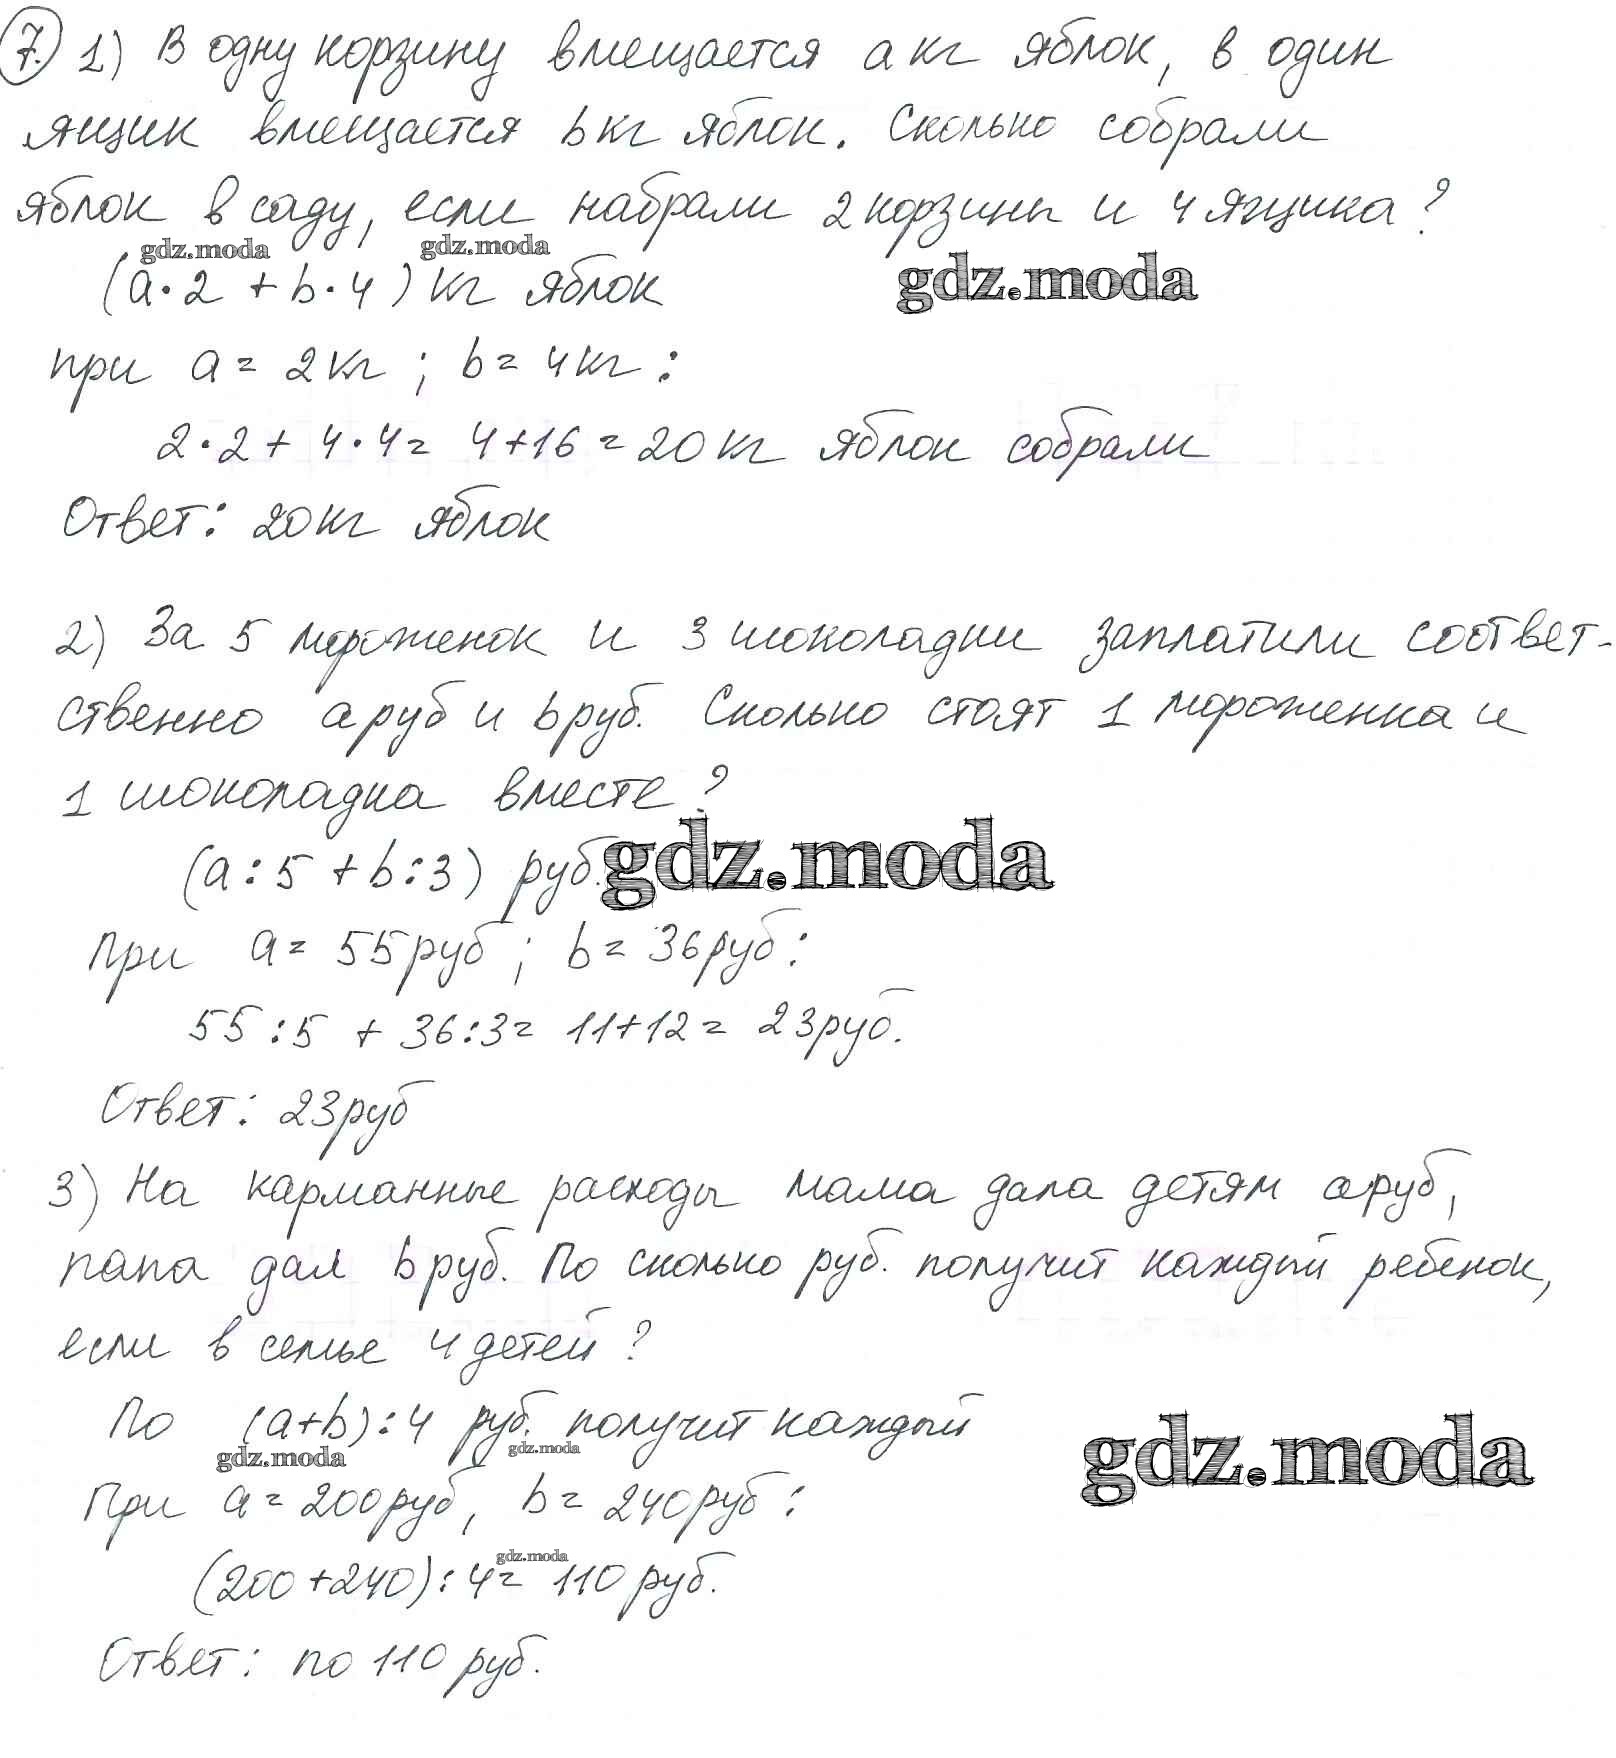 7. 1) В одну корзину вмещается a кг яблок, в один
ящик вмещается b кг яблок. Сколько собрали
яблок в саду, если набрали 2 корзины и 4 ящика?
gdz.moda gdz.moda
(a·2 + b·4) кг яблок gdz.moda
при a = 2 кг ; b = 4 кг :
2·2 + 4·4 = 4+16 = 20 кг яблок собрали
Ответ: 20 кг яблок
2) За 5 мороженок и 3 шоколадки заплатили соответ-
ственно a руб и b руб. Сколько стоят 1 мороженка и
1 шоколадка вместе?
(a:5 + b:3) руб. gdz.moda
При a = 55 руб ; b = 36 руб :
55:5 + 36:3 = 11+12 = 23 руб.
Ответ: 23 руб
3) На карманные расходы мама дала детям a руб,
папа дал b руб. По сколько руб. получит каждый ребенок,
если в семье 4 детей?
По (a+b):4 руб. получит каждый
gdz.moda gdz.moda gdz.moda
При a = 200 руб, b = 240 руб :
gdz.moda
(200+240):4 = 110 руб.
Ответ: по 110 руб.